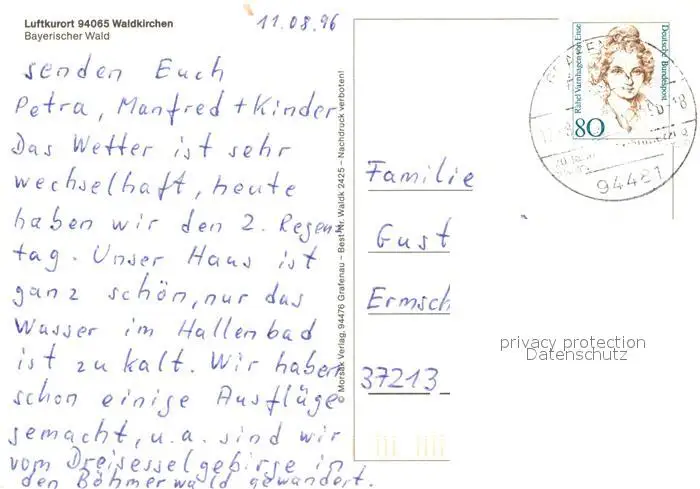 Luftkurort 94065 Waldkirchen
Bayerischer Wald
11.08.96
senden Euch
Petra, Manfred + Kinder
Das Wetter ist sehr
wechselhaft, heute
haben wir den 2. Regen-
tag. Unser Haus ist
ganz schön, nur das
Wasser im Hallenbad
ist zu kalt. Wir haben
schon einige Ausflüge
gemacht, u.a. sind wir
vom Dreisesselgebirge in
den Böhmerwald gewandert.
© Morsak Verlag, 94476 Grafenau – Best.-Nr. Waldk 2425 – Nachdruck verboten!
Familie
Gust
Ermsch
37213
Rahel Varnhagen von Ense
Deutsche Bundespost
80
94481
privacy protection
Datenschutz